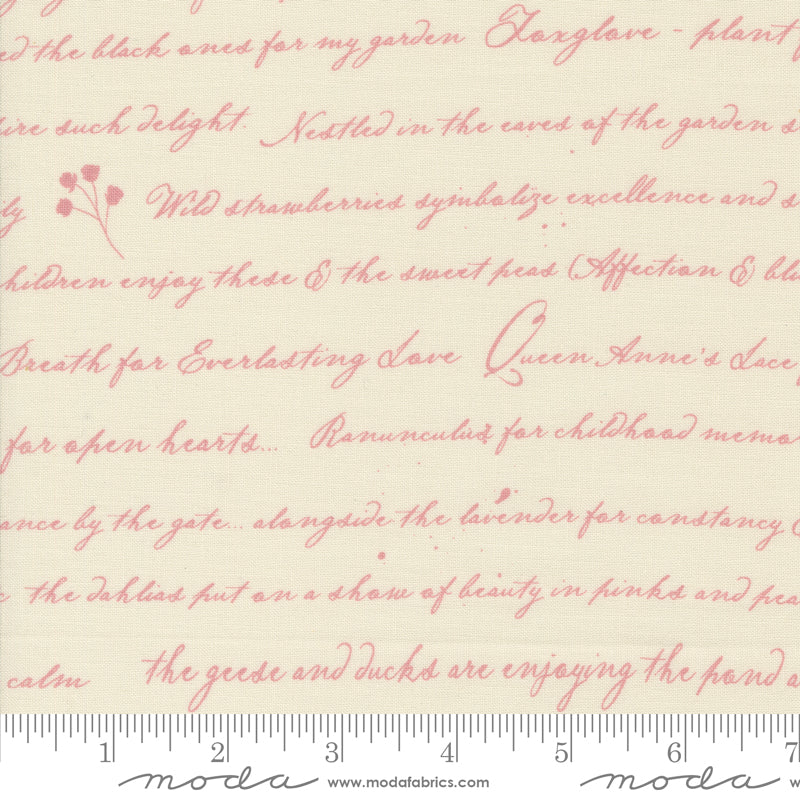 ed the black ones for my garden Foxglove - plant f
ire such delight. Nestled in the eaves of the garden s
ly Wild strawberries symbolize excellence and s
children enjoy these & the sweet peas (Affection & blu
Breath for Everlasting Love Queen Anne's Lace
for open hearts... Ranunculus for childhood memo
ance by the gate... alongside the lavender for constancy &
the dahlias put on a show of beauty in pinks and pea
calm the geese and ducks are enjoying the pond a
1 2 3 4 5 6 7
moda www.modafabrics.com moda w